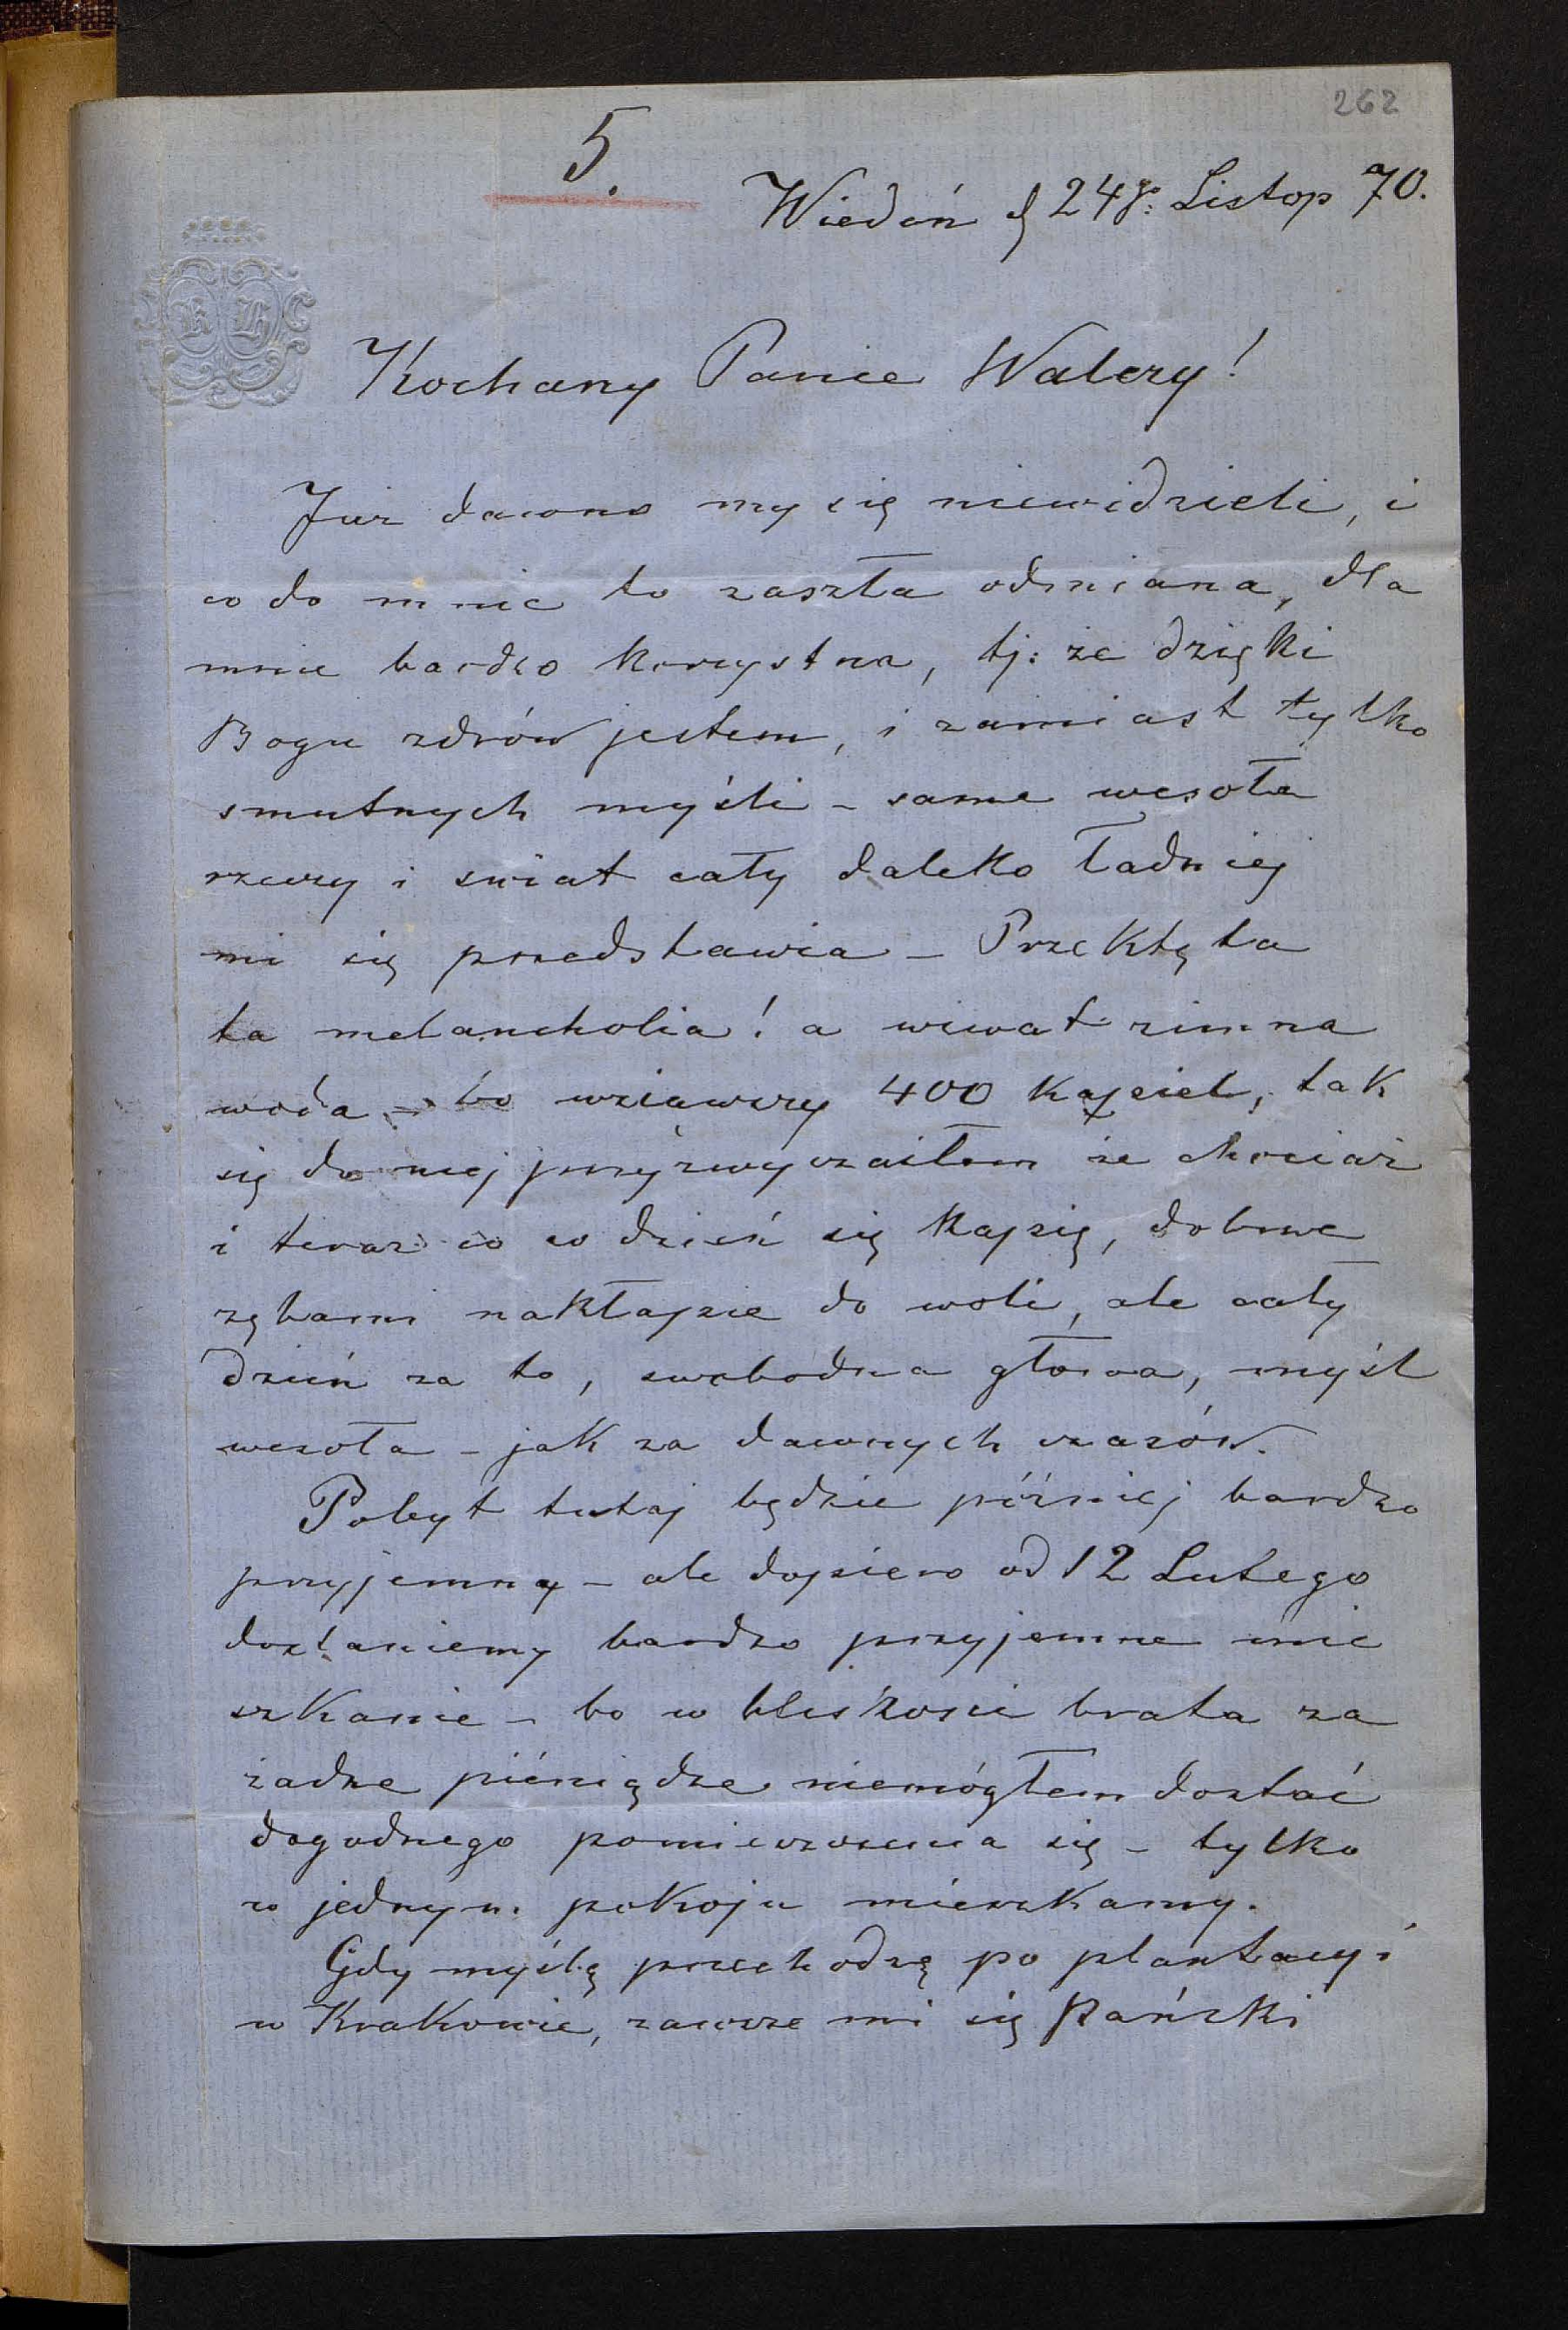 262
5.
Wiedeń d 24go: Listop 70.
K H
Kochany Panie Walery!
Już dawno my się niewidzieli, i
co do mnie to zaszła odmiana, dla
mnie bardzo korzystna, tj: że dzięki
Bogu zdrów jestem, i zamiast tylko
smutnych myśli - same wesołe
rzeczy i świat cały daleko ładniej
mi się przedstawia - Przeklęta
ta melancholia! a wiwat zimna
woda - bo wziąwszy 400 kąpiel, tak
się do niej przyzwyczaiłem że chociaż
i teraz co co dzień się kąpię, dobrze
zębami nakłapię do woli, ale cały
dzień za to, swobodna głowa, myśl
wesoła - jak za dawnych czasów.
Pobyt tutaj będzie później bardzo
przyjemny - ale dopiero od 12 Lutego
dostaniemy bardzo przyjemne mie
szkanie - bo w bliskości brata za
żadne pieniądze niemógłem dostać
dogodnego pomieszczenia się - tylko
w jednym pokoju mieszkamy.
Gdy myślę przechodzę po plantacyi
w Krakowie, zawsze mi się Pański